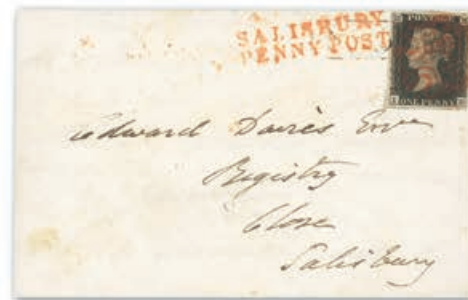 SALISBURY
PENNY POST
POSTAGE
ONE PENNY
Edward Davies Esqre
Registry
Close
Salisbury